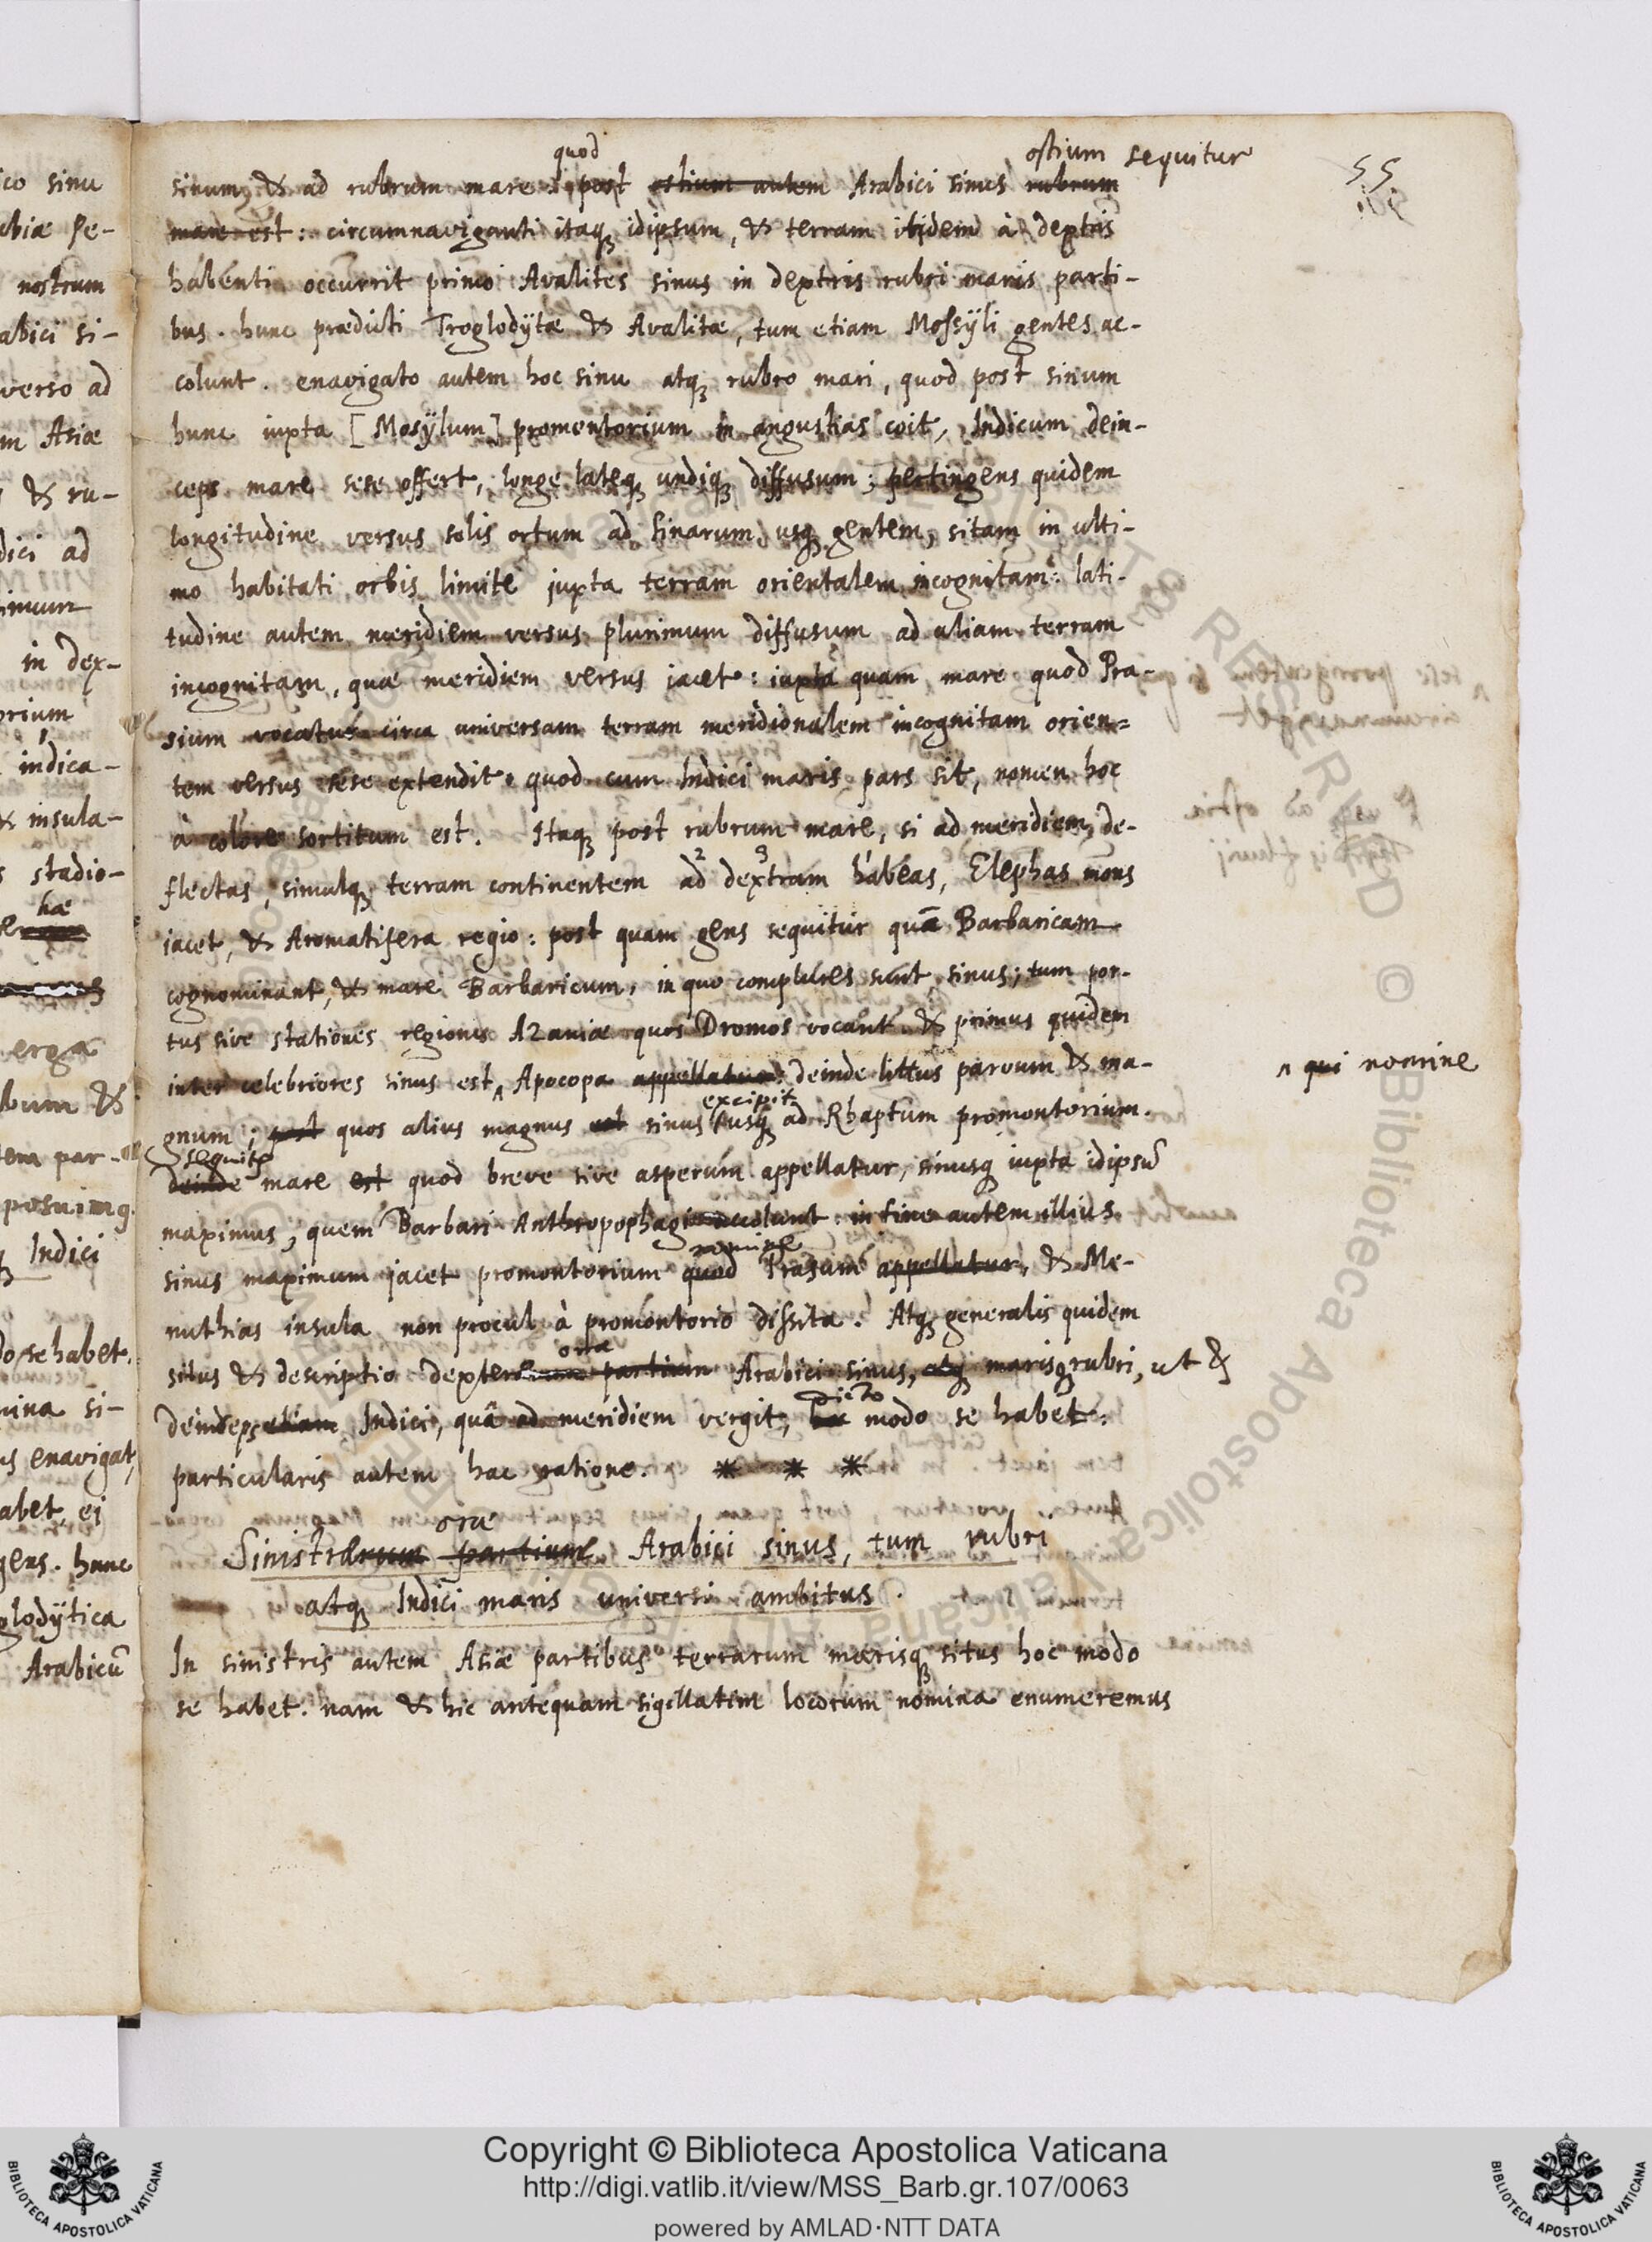 55
quod ostium sequitur
sinum, & ad rubrum mare. post ostium autem Arabici sinus rubrum
mare est: circumnaviganti itaq idipsum, & terram ibidem à dextris
habenti occurrit primo Avalites sinus in dextris rubri maris parti-
bus. hunc prædicti Troglodÿtæ & Avalitæ, tum etiam Mossÿli gentes ac-
colunt. enavigato autem hoc sinu atq rubro mari, quod post sinum
hunc iuxta [Mosÿlum] promontorium in angustias coit, Indicum dein-
ceps mare sese offert, longe lateq undiq diffusum; pertingens quidem
longitudine versus solis ortum ad Sinarum usq gentem, sitam in ulti-
mo habitati orbis limite juxta terram orientalem incognitam: lati-
tudine autem meridiem versus plurimum diffusum ad aliam terram
incognitam, quæ meridiem versus jacet: iuxta quam mare quod Pra-
sium vocatus circa universam terram meridionalem incognitam orien=
tem versus sese extendit. quod cum Indici maris pars sit, nomen hoc
à colore sortitum est. Itaq post rubrum mare, si ad meridiem de-
flectas, simulq terram continentem ad 2 dextram 3 habeas, Elephas mons
iacet, & Aromatifera regio: post quam gens sequitur quā Barbaricam
cognominant, & mare Barbaricum, in quo complures sunt sinus; tum por-
tus sive stationes regionis Azaniæ quos Dromos vocant & primus quidem
inter celebriores sinus est, Apocopa appellatur: deinde littus parvum & ma-
^ qui nomine
excipit
gnum; post quos alius magnus est sinus usq ad Rhaptum promontorium.
sequitr
deinde mare est quod breve sive asperum appellatur, sinusq iuxta idipsū
maximus; quem Barbari Anthropophagi accolunt. in fine autem illius
nomine
sinus maximum jacet promontorium quod Prasum appellatur, & Me-
nuthias insula non procul à promontorio dissita. Atq generalis quidem
oræ
situs & descriptio dexterarum partium Arabici sinus, atq marisq rubri, ut &
dicto
deinceps etiam Indici, quâ ad meridiem vergit, hoc modo se habet.
particularis autem hac ratione. * * *
oræ
Sinistrarum partium Arabici sinus, tum rubri
atq Indici maris universi ambitus.
In sinistris autem Asiæ partibus terrarum marisq situs hoc modo
se habet. nam & hic antequam sigillatim locorum nomina enumeremus
ico sinu
nostrum
abici si-
verso ad
m Asiæ
& ru-
dici ad
in dex-
indica-
insula-
stadio-
hæ
erga
bum &
Indici
se habet.
si-
enavigat,
abet, ei
gens. hanc
glodÿtica
Arabicū
RESERVED © Biblioteca Apostolica Vaticana
Copyright © Biblioteca Apostolica Vaticana
http://digi.vatlib.it/view/MSS_Barb.gr.107/0063
powered by AMLAD·NTT DATA
BIBLIOTECA APOSTOLICA VATICANA
BIBLIOTECA APOSTOLICA VATICANA